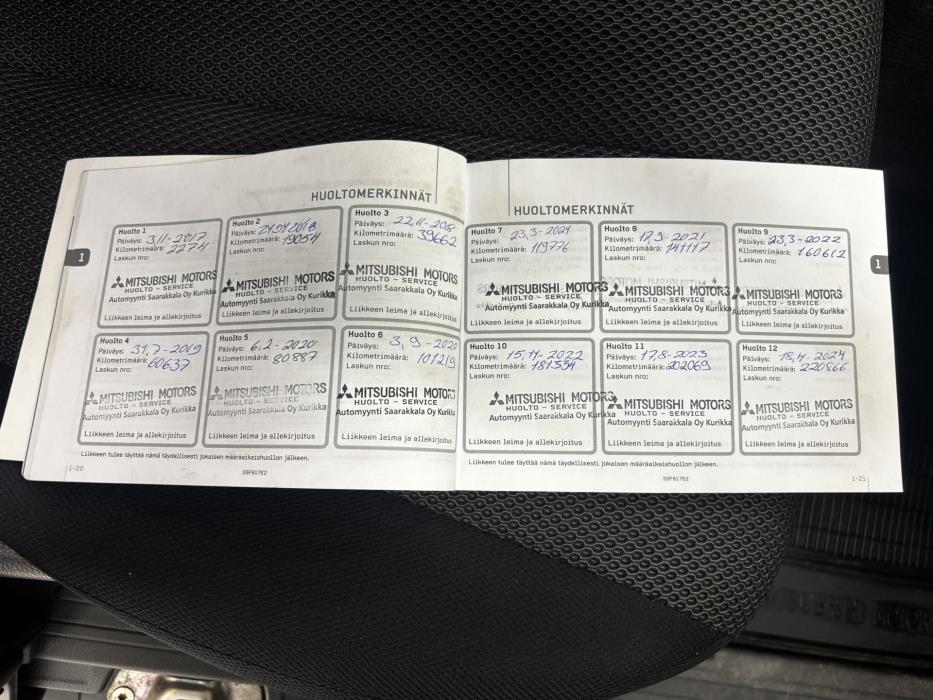 HUOLTOMERKINNÄT
1
Huolto 1
Päiväys: 3,11-2017
Kilometrimäärä: 22714
Laskun nro:
MITSUBISHI MOTORS
HUOLTO - SERVICE
Automyynti Saarakkala Oy Kurikka
Liikkeen leima ja allekirjoitus
Huolto 2
Päiväys:
Kilometrimäärä: 19054
Laskun nro:
MITSUBISHI MOTORS
HUOLTO - SERVICE
Automyynti Saarakkala Oy Kurikka
Liikkeen leima ja allekirjoitus
Huolto 3
Päiväys: 22,11-2018
Kilometrimäärä: 39662
Laskun nro:
MITSUBISHI MOTORS
HUOLTO - SERVICE
Automyynti Saarakkala Oy Kurikka
Liikkeen leima ja allekirjoitus
Huolto 4
Päiväys: 31,7-2019
Kilometrimäärä: 60637
Laskun nro:
MITSUBISHI MOTORS
HUOLTO - SERVICE
Automyynti Saarakkala Oy Kurikka
Liikkeen leima ja allekirjoitus
Huolto 5
Päiväys: 6,2-2020
Kilometrimäärä: 80887
Laskun nro:
MITSUBISHI MOTORS
HUOLTO - SERVICE
Automyynti Saarakkala Oy Kurikka
Liikkeen leima ja allekirjoitus
Huolto 6
Päiväys: 3,9-2020
Kilometrimäärä: 101219
Laskun nro:
MITSUBISHI MOTORS
HUOLTO - SERVICE
Automyynti Saarakkala Oy Kurikka
Liikkeen leima ja allekirjoitus
Liikkeen tulee täyttää nämä täydellisesti jokaisen määräaikaishuollon jälkeen.
1-20
SSF817E2
HUOLTOMERKINNÄT
1
Huolto 7
Päiväys: 23,3-2021
Kilometrimäärä: 119776
Laskun nro:
MITSUBISHI MOTORS
HUOLTO - SERVICE
Automyynti Saarakkala Oy Kurikka
Liikkeen leima ja allekirjoitus
Huolto 8
Päiväys: 17,9-2021
Kilometrimäärä: 141117
Laskun nro:
MITSUBISHI MOTORS
HUOLTO - SERVICE
Automyynti Saarakkala Oy Kurikka
Liikkeen leima ja allekirjoitus
Huolto 9
Päiväys: 23,3-2022
Kilometrimäärä: 160612
Laskun nro:
MITSUBISHI MOTORS
HUOLTO - SERVICE
Automyynti Saarakkala Oy Kurikka
Liikkeen leima ja allekirjoitus
Huolto 10
Päiväys: 15,11-2022
Kilometrimäärä: 181334
Laskun nro:
MITSUBISHI MOTORS
HUOLTO - SERVICE
Automyynti Saarakkala Oy Kurikka
Liikkeen leima ja allekirjoitus
Huolto 11
Päiväys: 17,8-2023
Kilometrimäärä: 202069
Laskun nro:
MITSUBISHI MOTORS
HUOLTO - SERVICE
Automyynti Saarakkala Oy Kurikka
Liikkeen leima ja allekirjoitus
Huolto 12
Päiväys: 18,4-2024
Kilometrimäärä: 220866
Laskun nro:
MITSUBISHI MOTORS
HUOLTO - SERVICE
Automyynti Saarakkala Oy Kurikka
Liikkeen leima ja allekirjoitus
Liikkeen tulee täyttää nämä täydellisesti jokaisen määräaikaishuollon jälkeen.
SSF817E2
1-21